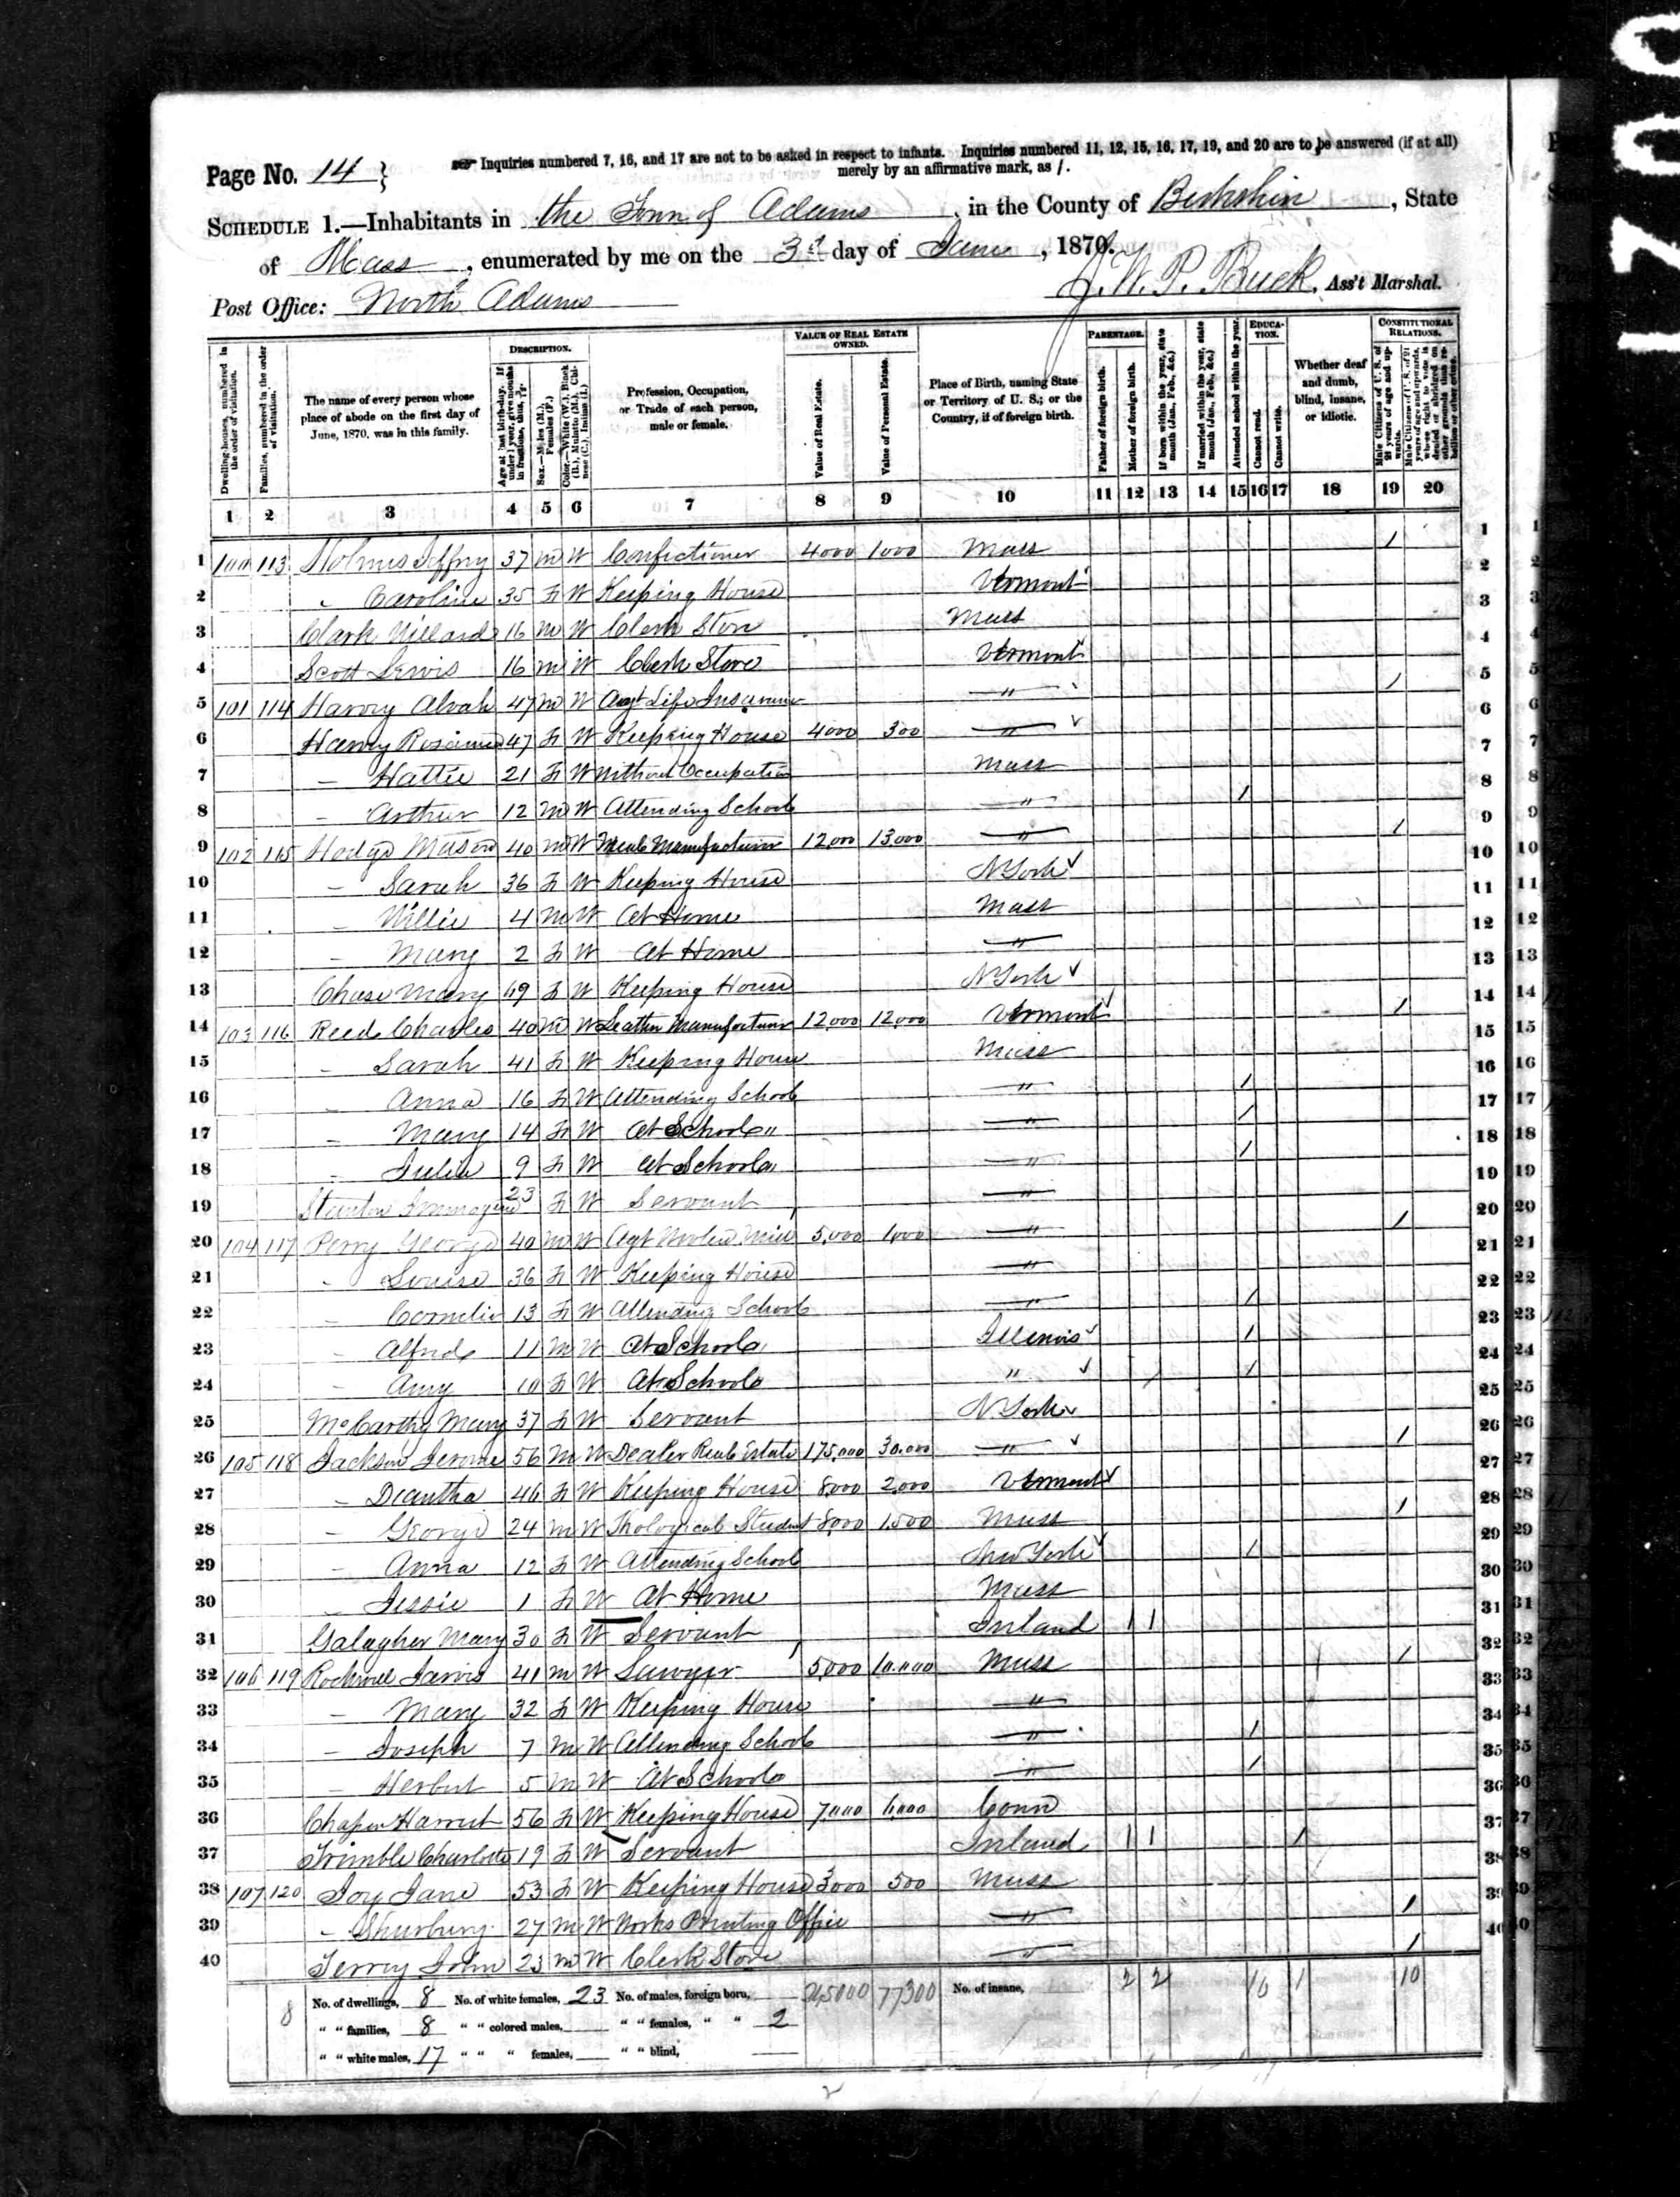 Page No. 14 } Inquiries numbered 7, 16, and 17 are not to be asked in respect to infants. Inquiries numbered 11, 12, 15, 16, 17, 19, and 20 are to be answered (if at all)
merely by an affirmative mark, as /.
SCHEDULE 1.—Inhabitants in the Town of Adams, in the County of Berkshire, State
of Mass, enumerated by me on the 3d day of June, 1870.
Post Office: North Adams J. W. P. Buck, Ass't Marshal.
VALUE OF REAL ESTATE OWNED. PARENTAGE. EDUCATION. CONSTITUTIONAL RELATIONS.
DESCRIPTION.
Dwelling-houses, numbered in the order of visitation.
Families, numbered in the order of visitation.
The name of every person whose place of abode on the first day of June, 1870, was in this family.
Age at last birth-day. If under 1 year, give months in fractions, thus,
Sex.—Males (M.), Females (F.)
Color.—White (W.), Black (B.), Mulatto (M.), Chinese (C.), Indian (I.)
Profession, Occupation, or Trade of each person, male or female.
Value of Real Estate.
Value of Personal Estate.
Place of Birth, naming State or Territory of U. S.; or the Country, if of foreign birth.
Father of foreign birth.
Mother of foreign birth.
If born within the year, state month (Jan., Feb., &c.)
If married within the year, state month (Jan., Feb., &c.)
Attended school within the year.
Cannot read.
Cannot write.
Whether deaf and dumb, blind, insane, or idiotic.
Male Citizens of U. S. of 21 years of age and upwards.
Male Citizens of U. S. of 21 years of age and upwards, whose right to vote is denied or abridged on other grounds than rebellion or other crime.
1 2 3 4 5 6 7 8 9 10 11 12 13 14 15 16 17 18 19 20
1 100 113 Holmes Jeffry 37 M W Confectioner 4000 1000 Mass / 1
2 " Caroline 35 F W Keeping House Vermont 2
3 Clark Willard 16 M W Clerk Store Mass 3
4 Scott Lewis 16 M W Clerk Store Vermont 4
5 101 114 Harvey Alvah 47 M W Agt Life Insurance " / 5
6 Harvey 47 F W Keeping House 4000 300 " 6
7 — Hattie 21 F W Without Occupation Mass 7
8 — Arthur 12 M W Attending School " / 8
9 102 115 Hodge Mason 40 M W Meal Manufacturer 12,000 13,000 " / 9
10 — Sarah 36 F W Keeping House N York 10
11 — Willie 4 M W At Home Mass 11
12 — Mary 2 F W At Home " 12
13 Chase Mary 69 F W Keeping House N York 13
14 103 116 Reed Charles 40 M W Leather Manufacturer 12,000 12,000 Vermont / 14
15 — Sarah 41 F W Keeping House Mass 15
16 — Anna 16 F W Attending School " / 16
17 — Mary 14 F W At School " / 17
18 — Julia 9 F W At School " / 18
19 Stanton 23 F W Servant " 19
20 104 117 Perry George 40 M W Agt Woolen Mill 5,000 1,000 " / 20
21 — Louise 36 F W Keeping House " 21
22 — Cornelia 13 F W Attending School " / 22
23 — Alfred 11 M W At School Illinois / 23
24 — Amy 10 F W At School " / 24
25 McCarthy Mary 37 F W Servant N York 25
26 105 118 Jackson Jerome 56 M W Dealer Real Estate 175,000 30,000 " / 26
27 — Diantha 46 F W Keeping House 8,000 2,000 Vermont 27
28 — George 24 M W Theological Student 8,000 1,500 Mass / 28
29 — Anna 12 F W Attending School New York / 29
30 — Jessie 1 F W At Home Mass 30
31 Galagher Mary 30 F W Servant Ireland / / 31
32 106 119 Rockwell Jarvis 41 M W Lawyer 5,000 10,000 Mass / 32
33 — Mary 32 F W Keeping House " 33
34 — Joseph 7 M W Attending School " / 34
35 — Herbert 5 M W At School " / 35
36 Chapin Harriet 56 F W Keeping House 7,000 6,000 Conn 36
37 Trimble Charlotte 19 F W Servant Ireland / / / 37
38 107 120 Joy Jane 53 F W Keeping House 3000 500 Mass 38
39 — 27 M W Works Printing Office " / 39
40 Terrey John 23 M W Clerk Store " / 40
8 No. of dwellings, 8 No. of white females, 23 No. of males, foreign born, 77300 No. of insane, 2 2 1 10
" " families, 8 " " colored males, " " females, " " 2
" " white males, 17 " " " females, " " blind,